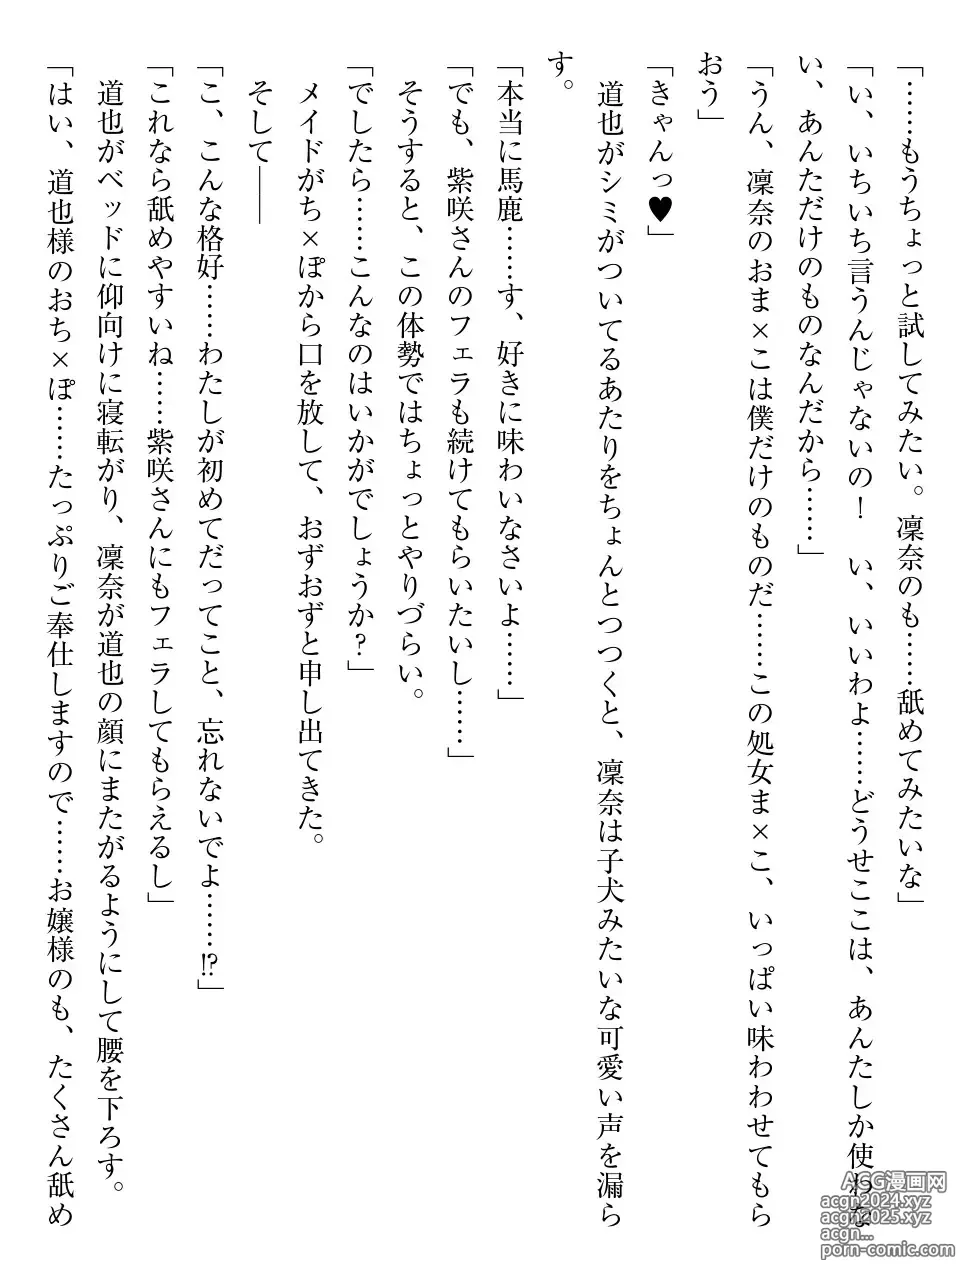 「……もうちょっと試してみたい。凜奈のも……舐めてみたいな」
「い、いちいち言うんじゃないの！　い、いいわよ……どうせここは、あんたしか使わな
い、あんただけのものなんだから……」
「うん、凜奈のおま×こは僕だけのものだ……この処女ま×こ、いっぱい味わわせてもら
おう」
「きゃんっ♥」
　道也がシミがついてるあたりをちょんとつつくと、凜奈は子犬みたいな可愛い声を漏ら
す。
「本当に馬鹿……す、好きに味わいなさいよ……」
「でも、紫咲さんのフェラも続けてもらいたいし……」
　そうすると、この体勢ではちょっとやりづらい。
「でしたら……こんなのはいかがでしょうか？」
　メイドがち×ぽから口を放して、おずおずと申し出てきた。
　そして――
「こ、こんな格好……わたしが初めてだってこと、忘れないでよ……!?」
「これなら舐めやすいね……紫咲さんにもフェラしてもらえるし」
　道也がベッドに仰向けに寝転がり、凜奈が道也の顔にまたがるようにして腰を下ろす。
「はい、道也様のおち×ぽ……たっぷりご奉仕しますので……お嬢様のも、たくさん舐め
ACG漫画网
acgn2024.xyz
acgn2025.xyz
acgn...
porn-comic.com